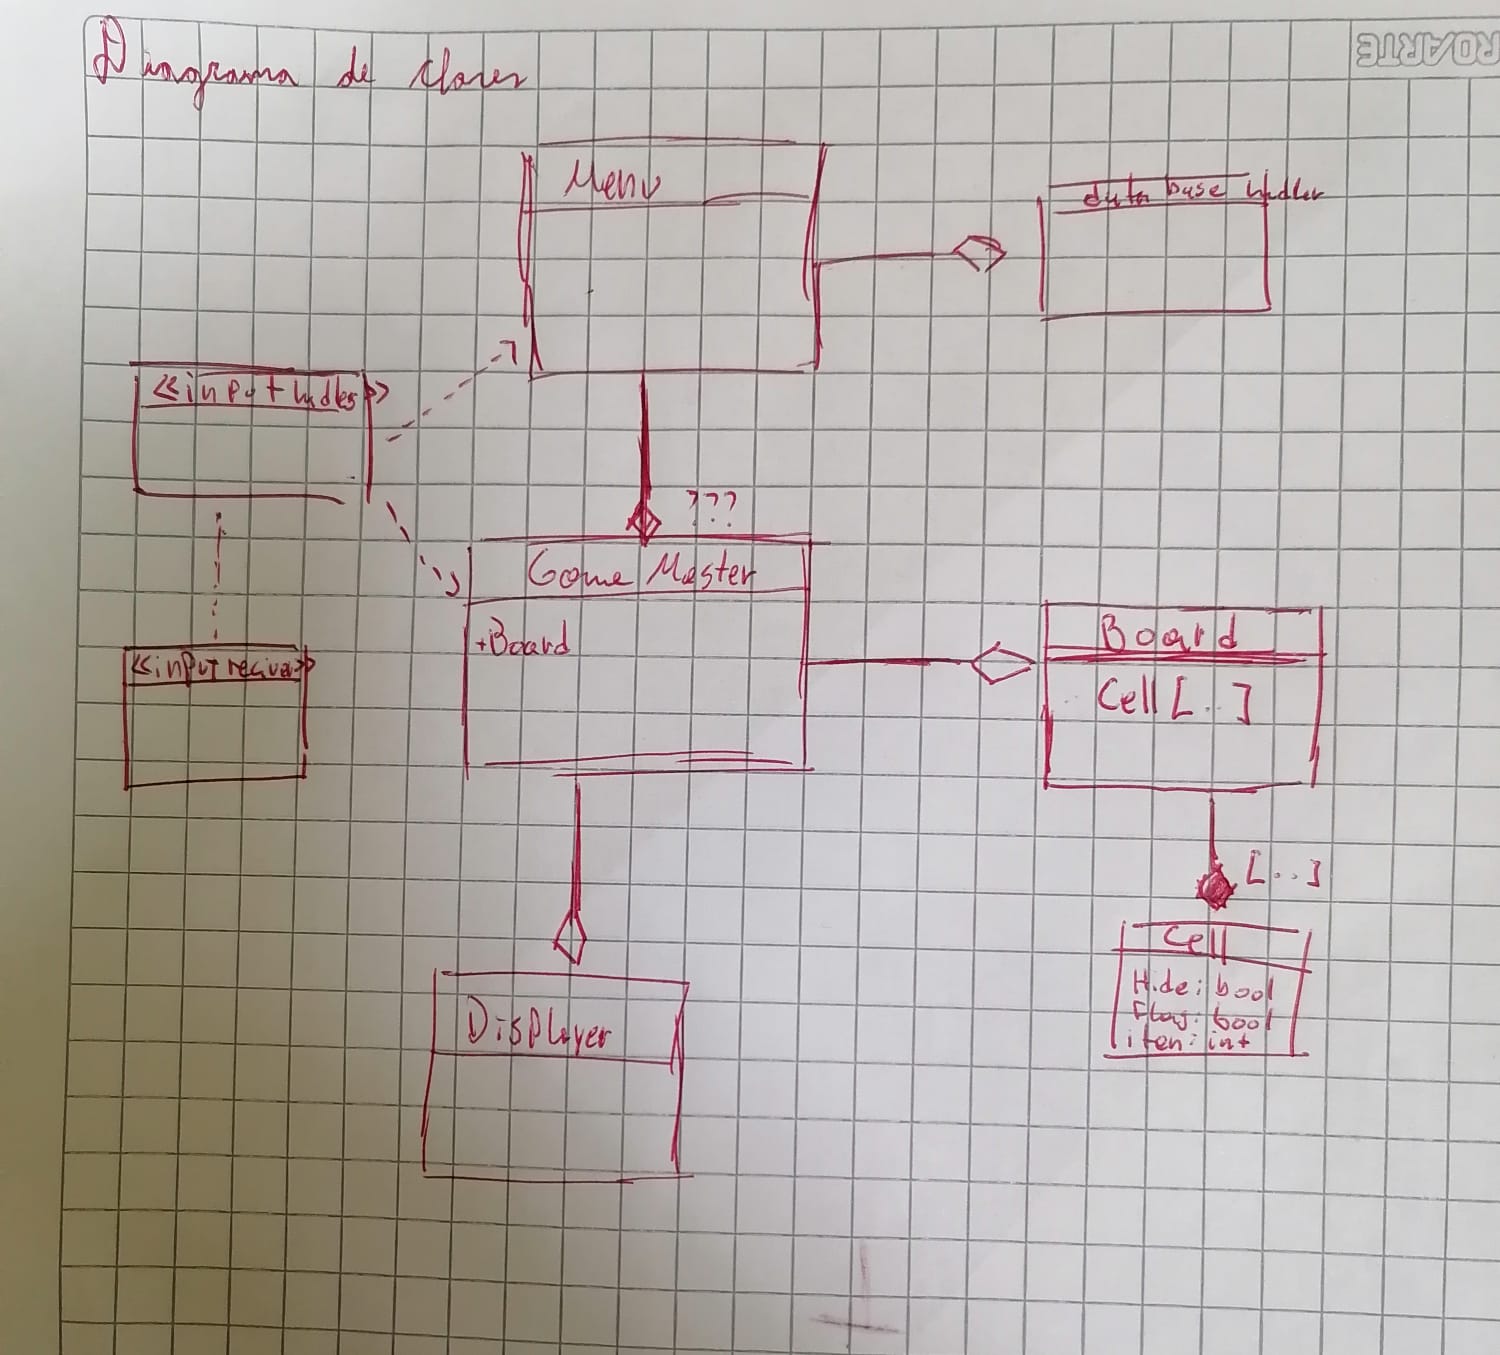 Diagrama de clases
ROARTE
Menu
data base hndler
<<input hndler>>
???
Game Master
+Board
<<input reciver>>
Board
Cell [..]
[..]
Cell
Hide: bool
Flag: bool
iten: int
DisPlayer